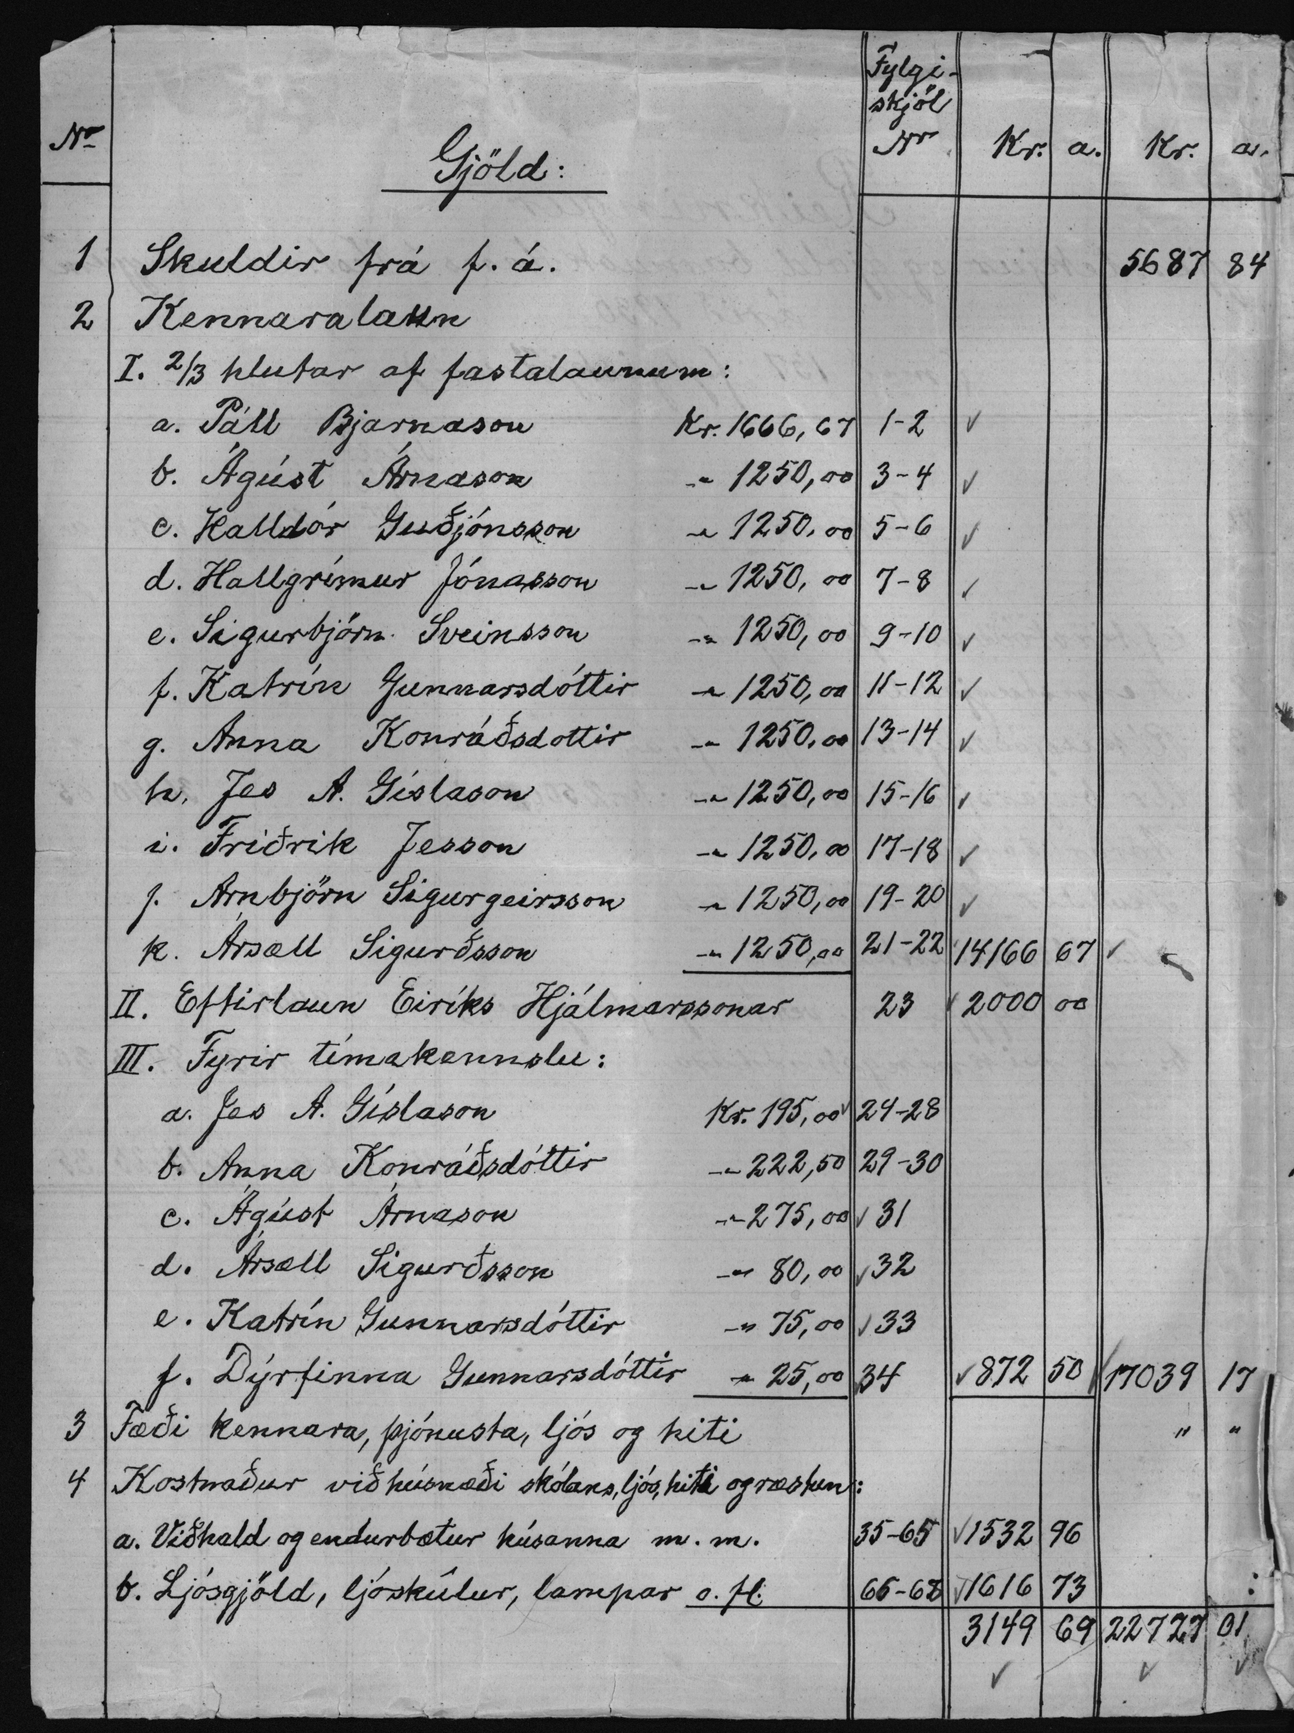 Nr Gjöld: Fylgi-skjöl Nr Kr. a. Kr. a.
1 Skuldir frá f. á. 5687 84
2 Kennaralaun
I. 2/3 hlutar af fastalaunum:
a. Páll Bjarnason Kr. 1666,67 1-2 ✓
b. Ágúst Árnason -"- 1250,00 3-4 ✓
c. Halldór Guðjónsson -"- 1250,00 5-6 ✓
d. Hallgrímur Jónasson -"- 1250,00 7-8 ✓
e. Sigurbjörn Sveinsson -"- 1250,00 9-10 ✓
f. Katrín Gunnarsdóttir -"- 1250,00 11-12 ✓
g. Anna Konráðsdottir -"- 1250,00 13-14 ✓
h. Jes A. Gíslason -"- 1250,00 15-16 ✓
i. Friðrik Jesson -"- 1250,00 17-18 ✓
j. Arnbjörn Sigurgeirsson -"- 1250,00 19-20 ✓
k. Ársæll Sigurðsson -"- 1250,00 21-22 14166 67 ✓
II. Eftirlaun Eiríks Hjálmarssonar 23 ✓ 2000 00
III. Fyrir tímakennslu:
a. Jes A. Gíslason Kr. 195,00 ✓ 24-28
b. Anna Konráðsdóttir -"- 222,50 29-30
c. Ágúst Árnason -"- 275,00 ✓ 31
d. Ársæll Sigurðsson -"- 80,00 ✓ 32
e. Katrín Gunnarsdóttir -"- 75,00 ✓ 33
f. Dýrfinna Gunnarsdóttir -"- 25,00 34 ✓ 872 50 ✓ 17039 17
3 Fæði kennara, þjónusta, ljós og hiti " "
4 Kostnaður við húsnæði skólans, ljós, hiti og ræstun:
a. Viðhald og endurbætur húsanna m. m. 35-65 ✓ 1532 96
b. Ljósgjöld, ljóskúlur, lampar o. fl. 66-68 ✓ 1616 73
3149 69 22727 01
✓ ✓ ✓